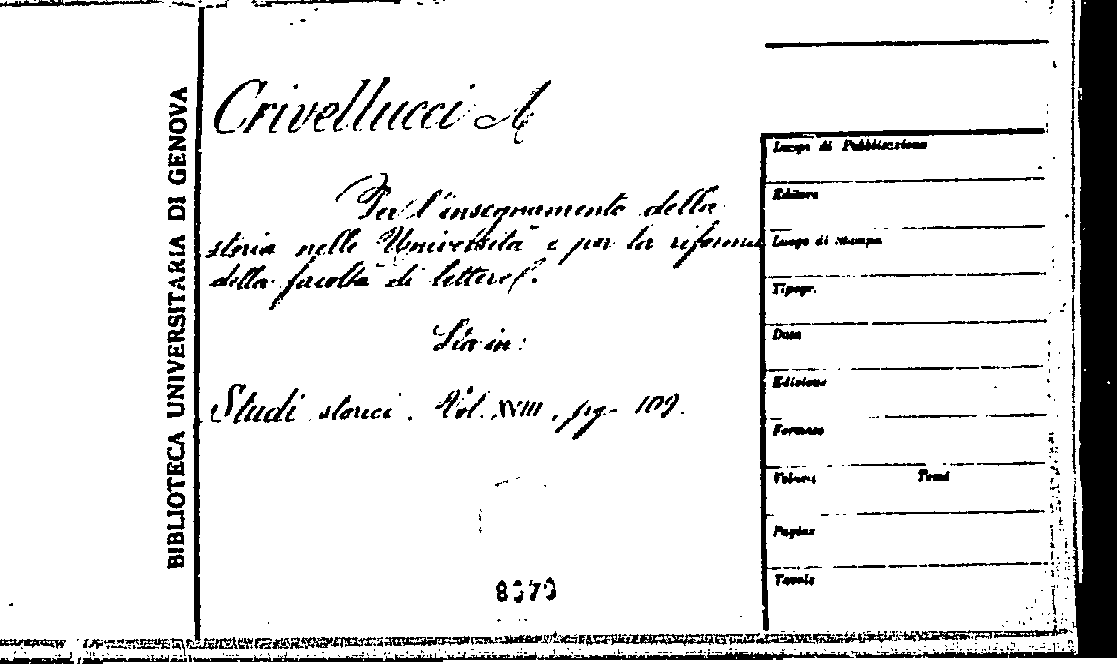 BIBLIOTECA UNIVERSITARIA DI GENOVA
Crivellucci A
Per l'insegnamento della
storia nelle Università e per la riforma
della facoltà di lettere.
Sta in:
Studi storici. Vol. XVIII, pg. 109.
Luogo di Pubblicazione
Editore
Luogo di stampa
Tipogr.
Data
Edizione
Formato
Volumi Tomi
Pagine
Tavole